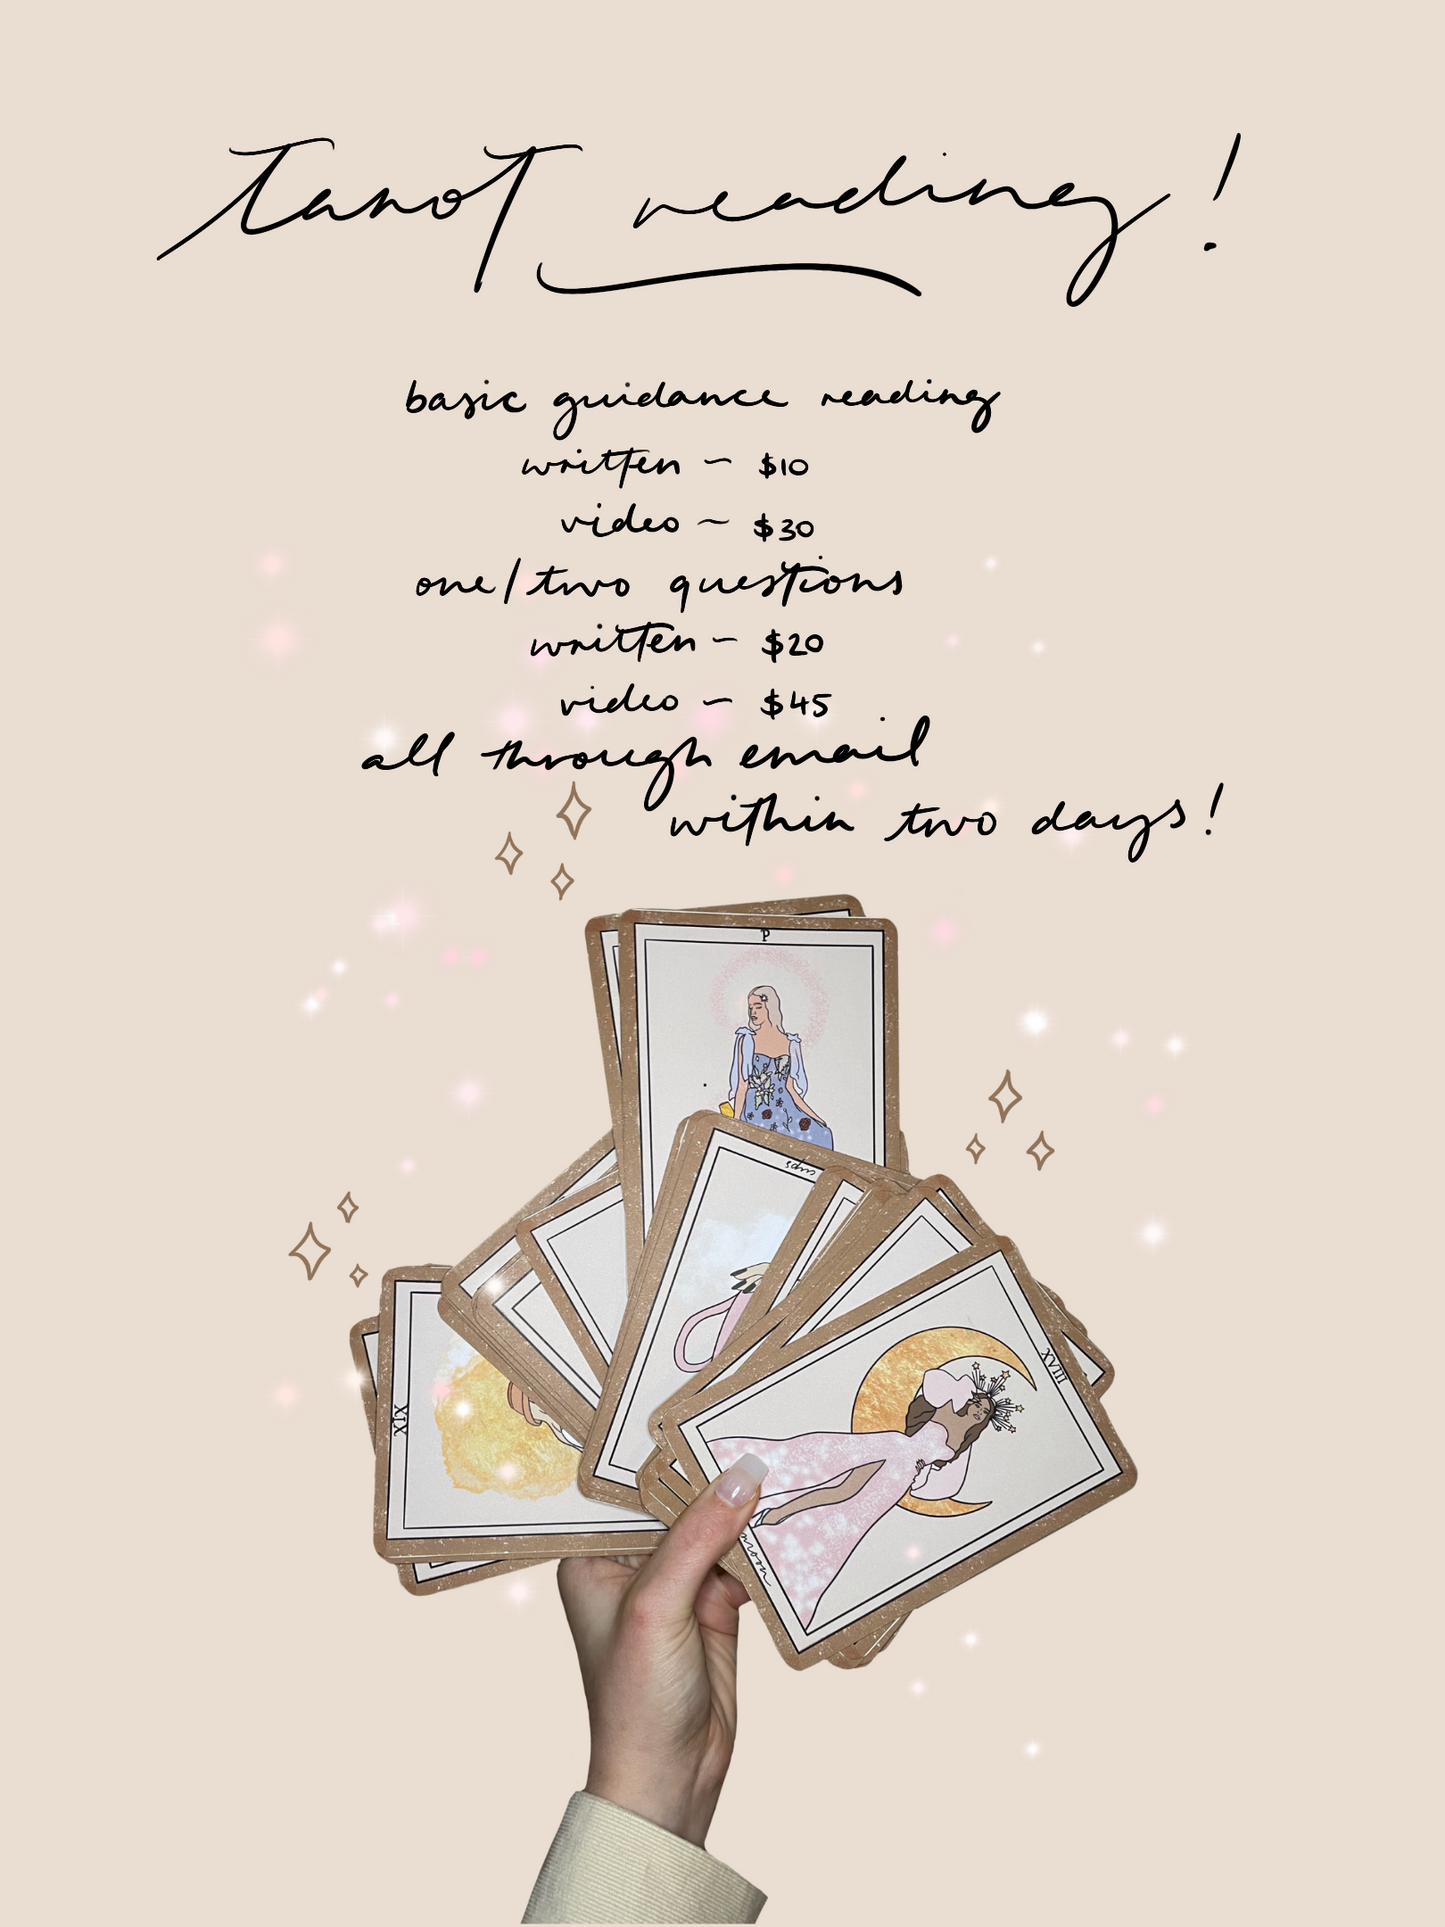 tarot reading!
basic guidance reading
written - $10
video ~ $30
one/two questions
written - $20
video - $45
all through email
within two days!
P
cups
XVIII
XIX
moon